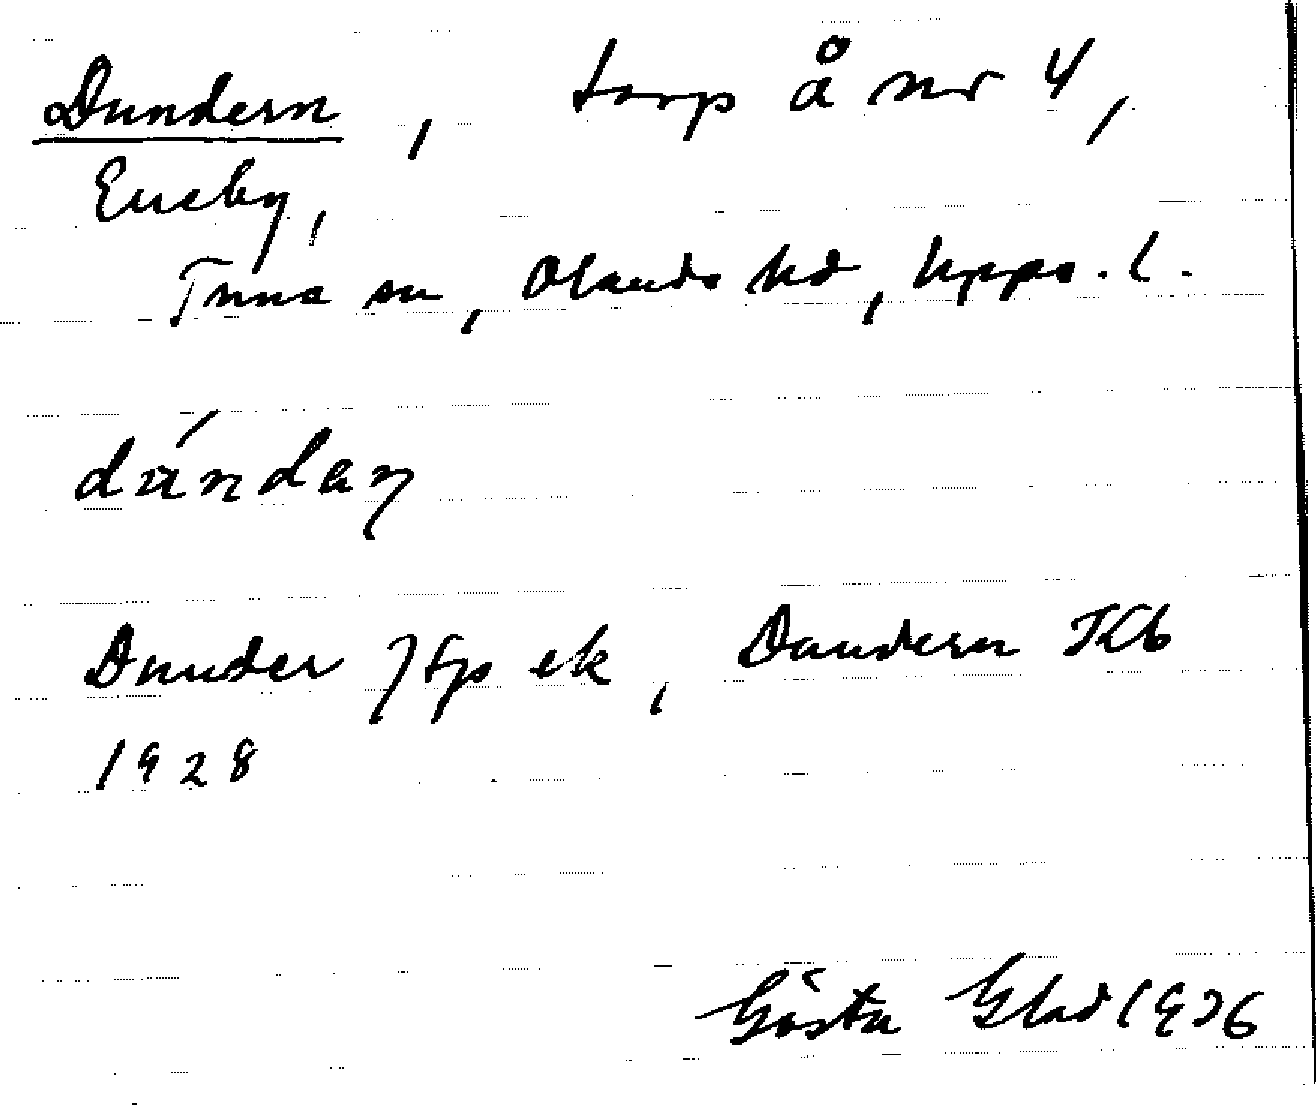 Dundern, torp å nr 4,
Ensby,
Tuna sn, Olands hd, Upps. l.
dúndaṇ
Dunder Jfp ek, Dundern TKb
1928
Gösta Glad 1936